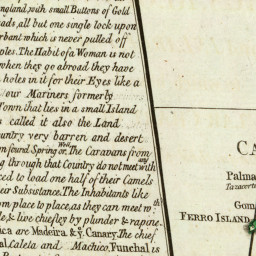 ngland, with small Buttons of Gold
eads, all but one single lock upon
rbant which is never pulled off
ples. The Habit of a Woman is not
when they go abroad they have
holes in it for their Eyes like a
our Mariners formerly
Town that lies in a small Island
called it also the Land
untry very barren and desert
n found Spring or Well. The Caravans from
g through that Country do not meet with any
ced to load one half of their Camels
eir Subsistance. The Inhabitants like
om place to place, as they can meet wth
le, & live chiefley by plunder & rapine
ica are Madeira & ye Canary. The chief
al. Caleta and Machico, Funchal is
CA
Palma
Tazacorte
Gom
FERRO ISLAND